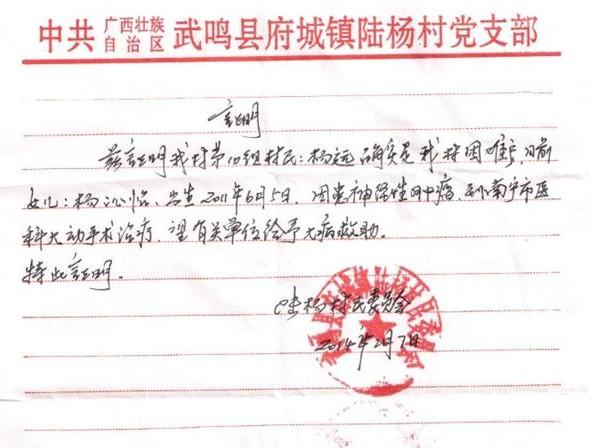 中共广西壮族自治区武鸣县府城镇陆杨村党支部
证明
兹证明我村第10组村民:杨远 确实是我村困难户,目前
女儿:杨沁怡、出生2011年6月5日,因患神经性肿瘤,到南宁市医
科大动手术治疗,望有关单位给予大病救助。
特此证明。
陆杨村民委员会
2014年2月7日